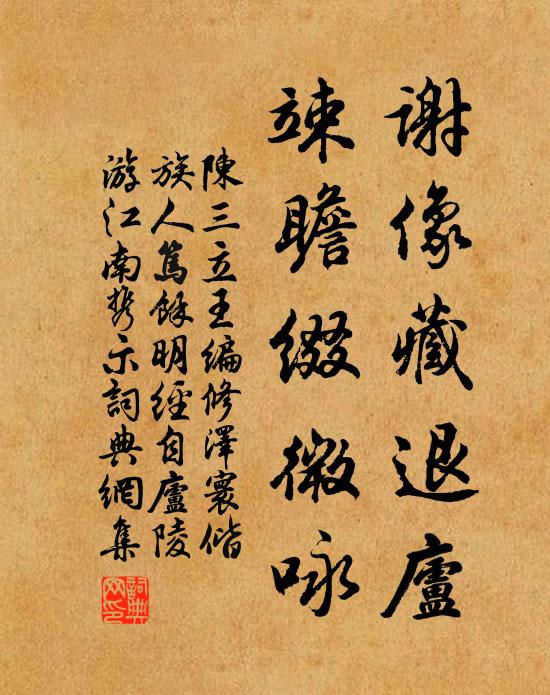 謝像藏退廬
竦瞻綴微咏
陳三立王編修澤寰偕
族人篤餘明經自廬陵
游江南携示詞典網集
詞典網印